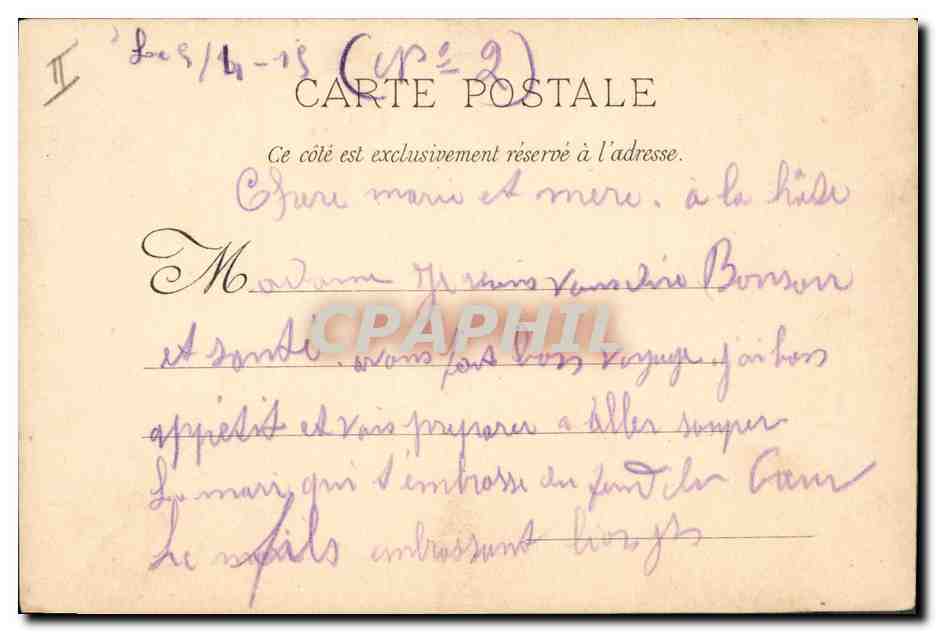 II
Le 5/4-15 (N° 2)
CARTE POSTALE
Ce côté est exclusivement réservé à l'adresse.
Chere marie et mere. à la hâte
Madame Je viens vous dire Bonsoir
CPAPHIL
et santé. avons fait bon voyage. j'ai bon
appétit et vais preparer a aller souper
Le mari qui t'embrasse du fond du Coeur
Le fils embrassant